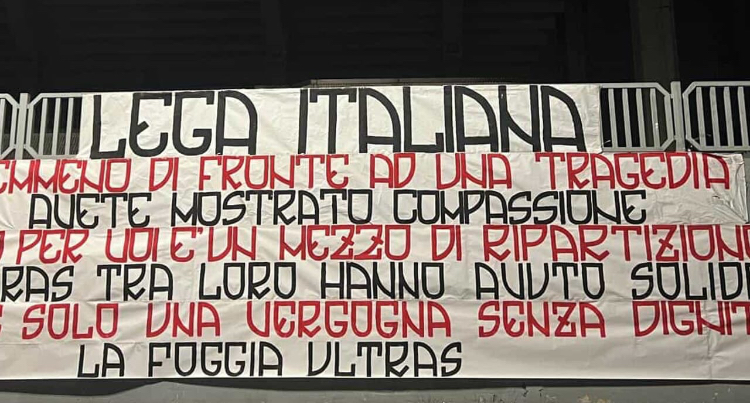 LEGA ITALIANA
EMMENO DI FRONTE AD UNA TRAGEDIA
AVETE MOSTRATO COMPASSIONE
PER VOI E' UN MEZZO DI RIPARTIZIONE
RAS TRA LORO HANNO AVVTO SOLID
SOLO UNA VERGOGNA SENZA DIGNIT
LA FOGGIA ULTRAS